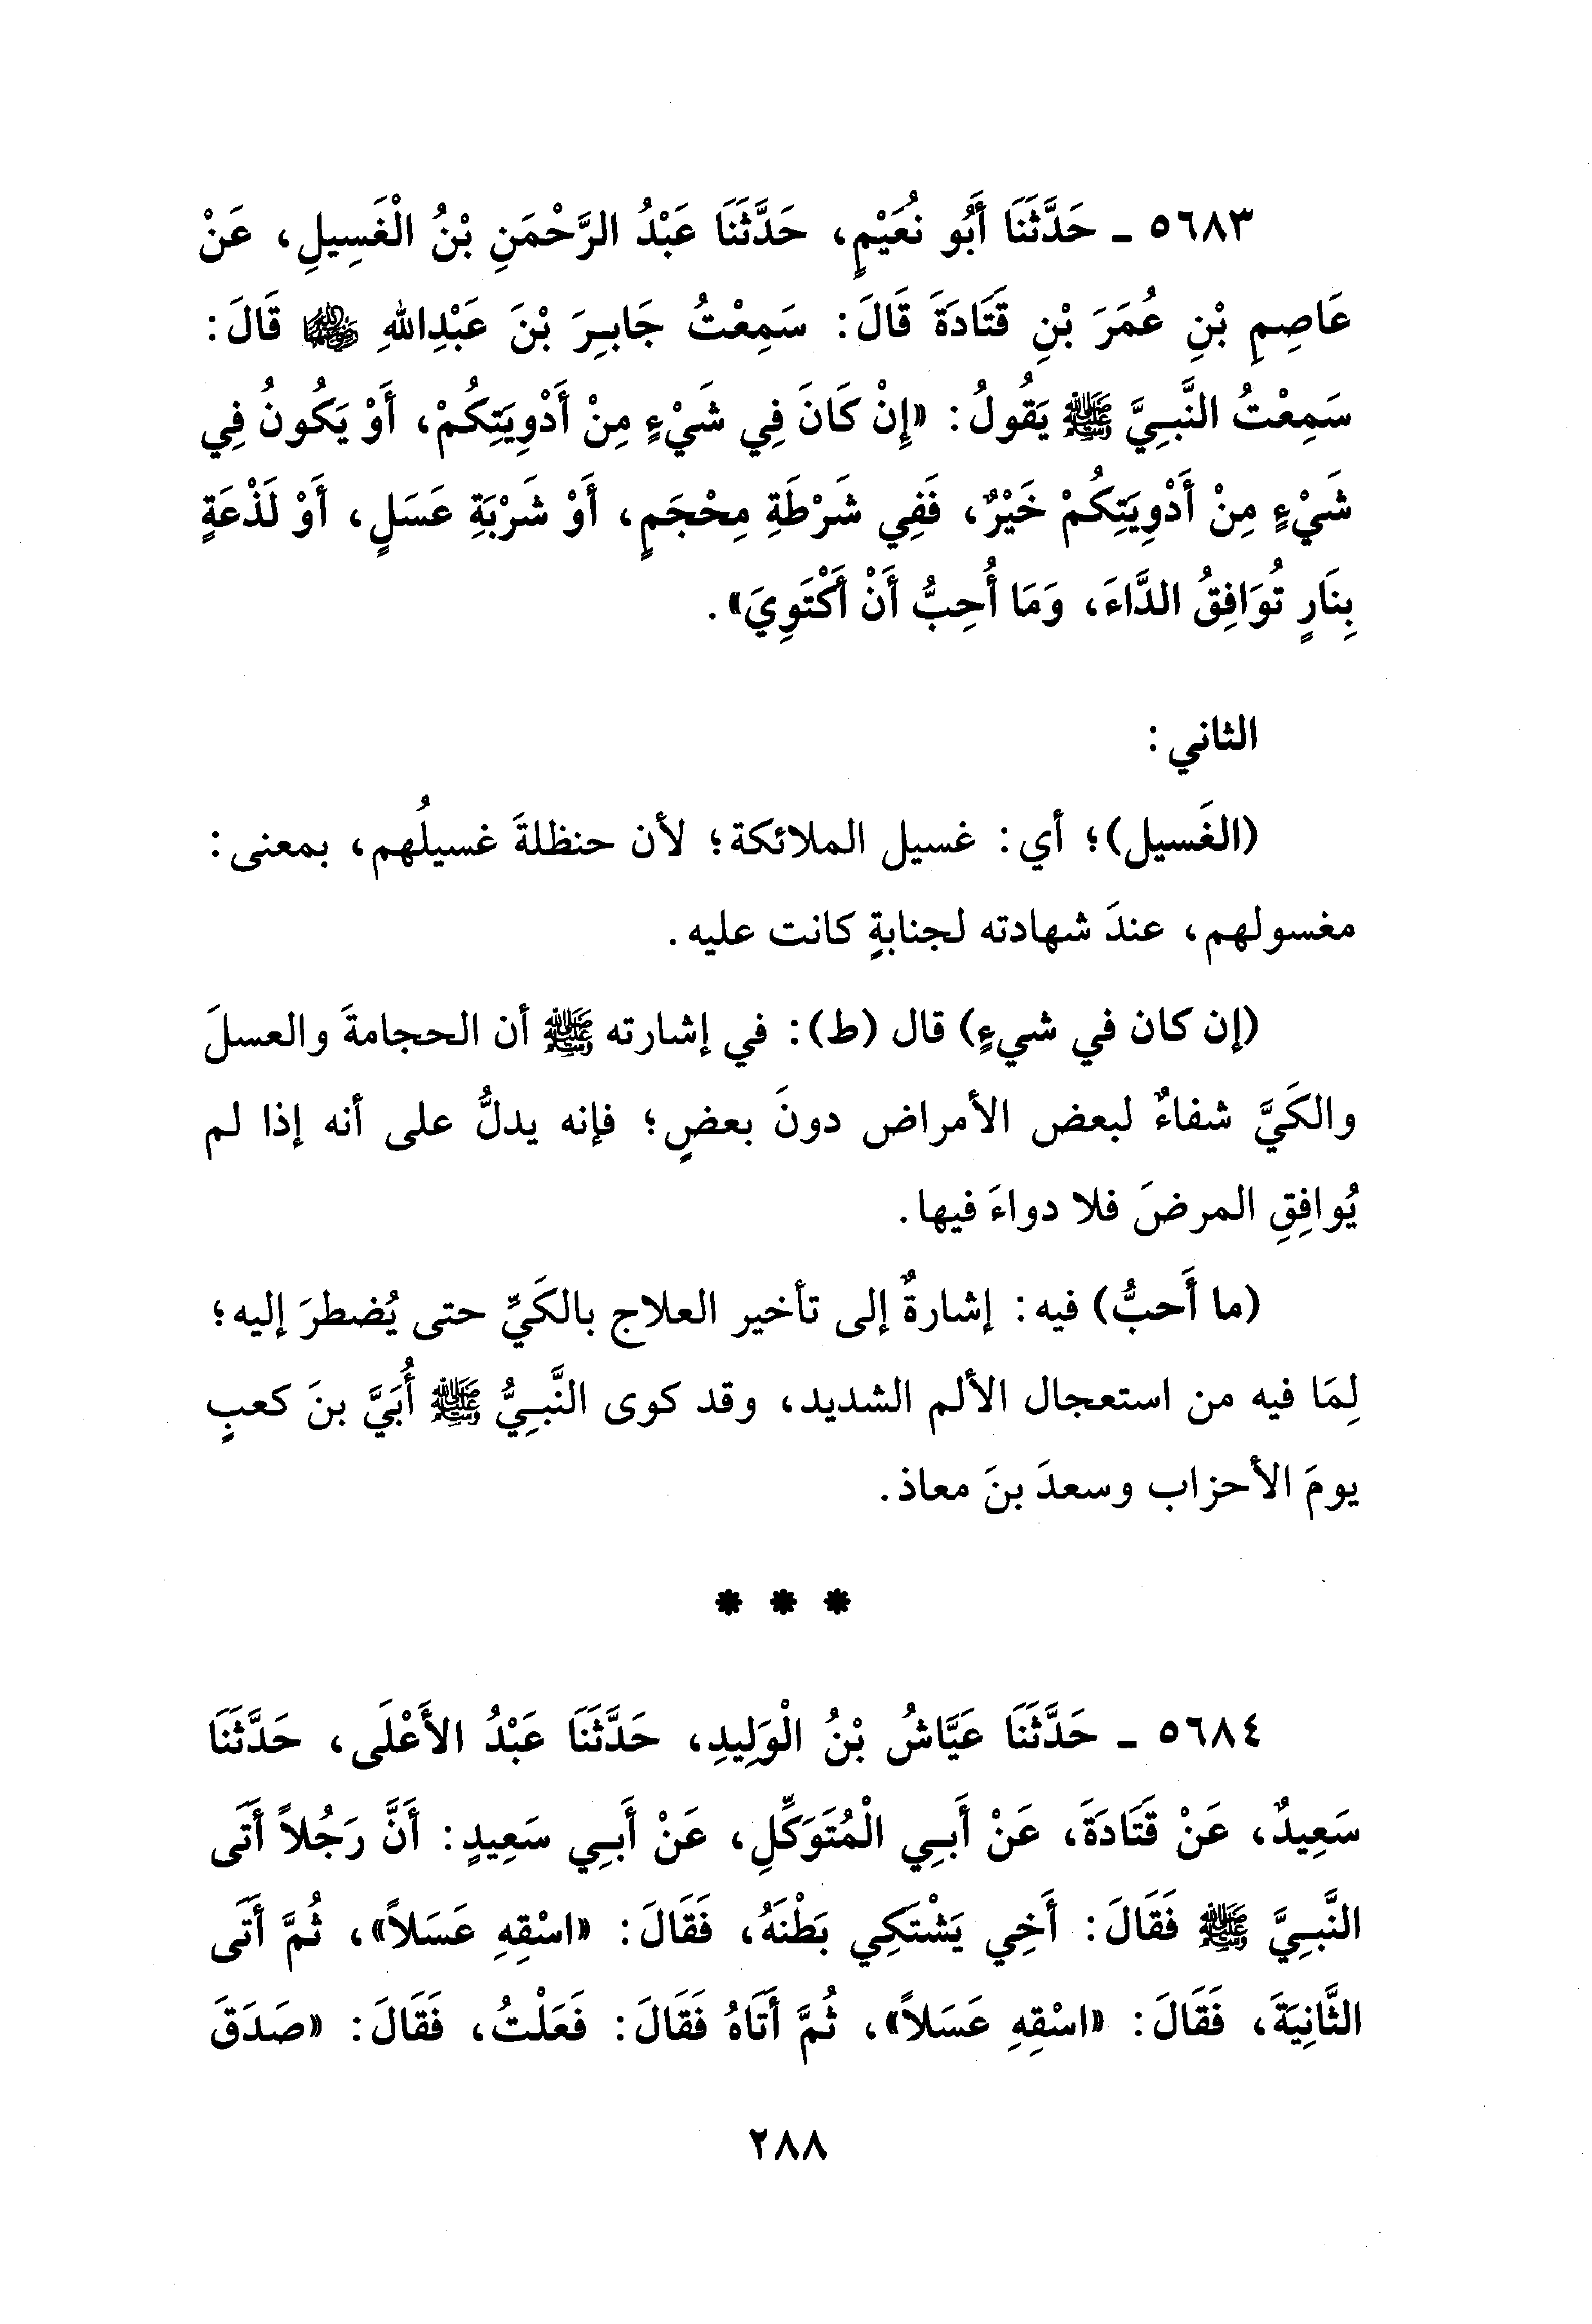 ٥٦٨٣ ـ حَدَّثَنَا أَبُو نُعَيْمٍ، حَدَّثَنَا عَبْدُ الرَّحْمَنِ بْنُ الْغَسِيلِ، عَنْ
عَاصِمِ بْنِ عُمَرَ بْنِ قَتَادَةَ قَالَ: سَمِعْتُ جَابِرَ بْنَ عَبْدِاللهِ ﵄ قَالَ:
سَمِعْتُ النَّبِيَّ ﷺ يَقُولُ: «إِنْ كَانَ فِي شَيْءٍ مِنْ أَدْوِيَتِكُمْ، أَوْ يَكُونُ فِي
شَيْءٍ مِنْ أَدْوِيَتِكُمْ خَيْرٌ، فَفِي شَرْطَةِ مِحْجَمٍ، أَوْ شَرْبَةِ عَسَلٍ، أَوْ لَذْعَةٍ
بِنَارٍ تُوَافِقُ الدَّاءَ، وَمَا أُحِبُّ أَنْ أَكْتَوِيَ».
الثاني:
(الغَسيل)؛ أي: غسيل الملائكة؛ لأن حنظلةَ غسيلُهم، بمعنى:
مغسولهم، عندَ شهادته لجنابةٍ كانت عليه.
(إن كان في شيءٍ) قال (ط): في إشارته ﷺ أن الحجامةَ والعسلَ
والكَيَّ شفاءٌ لبعض الأمراض دونَ بعضٍ؛ فإنه يدلُّ على أنه إذا لم
يُوافِقِ المرضَ فلا دواءَ فيها.
(ما أَحبُّ) فيه: إشارةٌ إلى تأخير العلاج بالكَيِّ حتى يُضطرَ إليه؛
لِمَا فيه من استعجال الألم الشديد، وقد كوى النَّبِيُّ ﷺ أُبَيَّ بنَ كعبٍ
يومَ الأحزاب وسعدَ بنَ معاذ.
* * *
٥٦٨٤ ـ حَدَّثَنَا عَيَّاشُ بْنُ الْوَلِيدِ، حَدَّثَنَا عَبْدُ الأَعْلَى، حَدَّثَنَا
سَعِيدٌ، عَنْ قَتَادَةَ، عَنْ أَبِي الْمُتَوَكِّلِ، عَنْ أَبِي سَعِيدٍ: أَنَّ رَجُلاً أَتَى
النَّبِيَّ ﷺ فَقَالَ: أَخِي يَشْتَكِي بَطْنَهُ، فَقَالَ: «اسْقِهِ عَسَلاً»، ثُمَّ أَتَى
الثَّانِيَةَ، فَقَالَ: «اسْقِهِ عَسَلاً»، ثُمَّ أَتَاهُ فَقَالَ: فَعَلْتُ، فَقَالَ: «صَدَقَ
٢٨٨